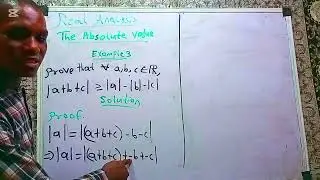 Real Analysis
The Absolute Value
Example 3
Prove that ∀ a,b,c ∈ ℝ,
|a+b+c| ≥ |a|-|b|-|c|
Solution
Proof:
|a| = |(a+b+c) -b-c|
⇒ |a| = |(a+b+c)+-b+-c|